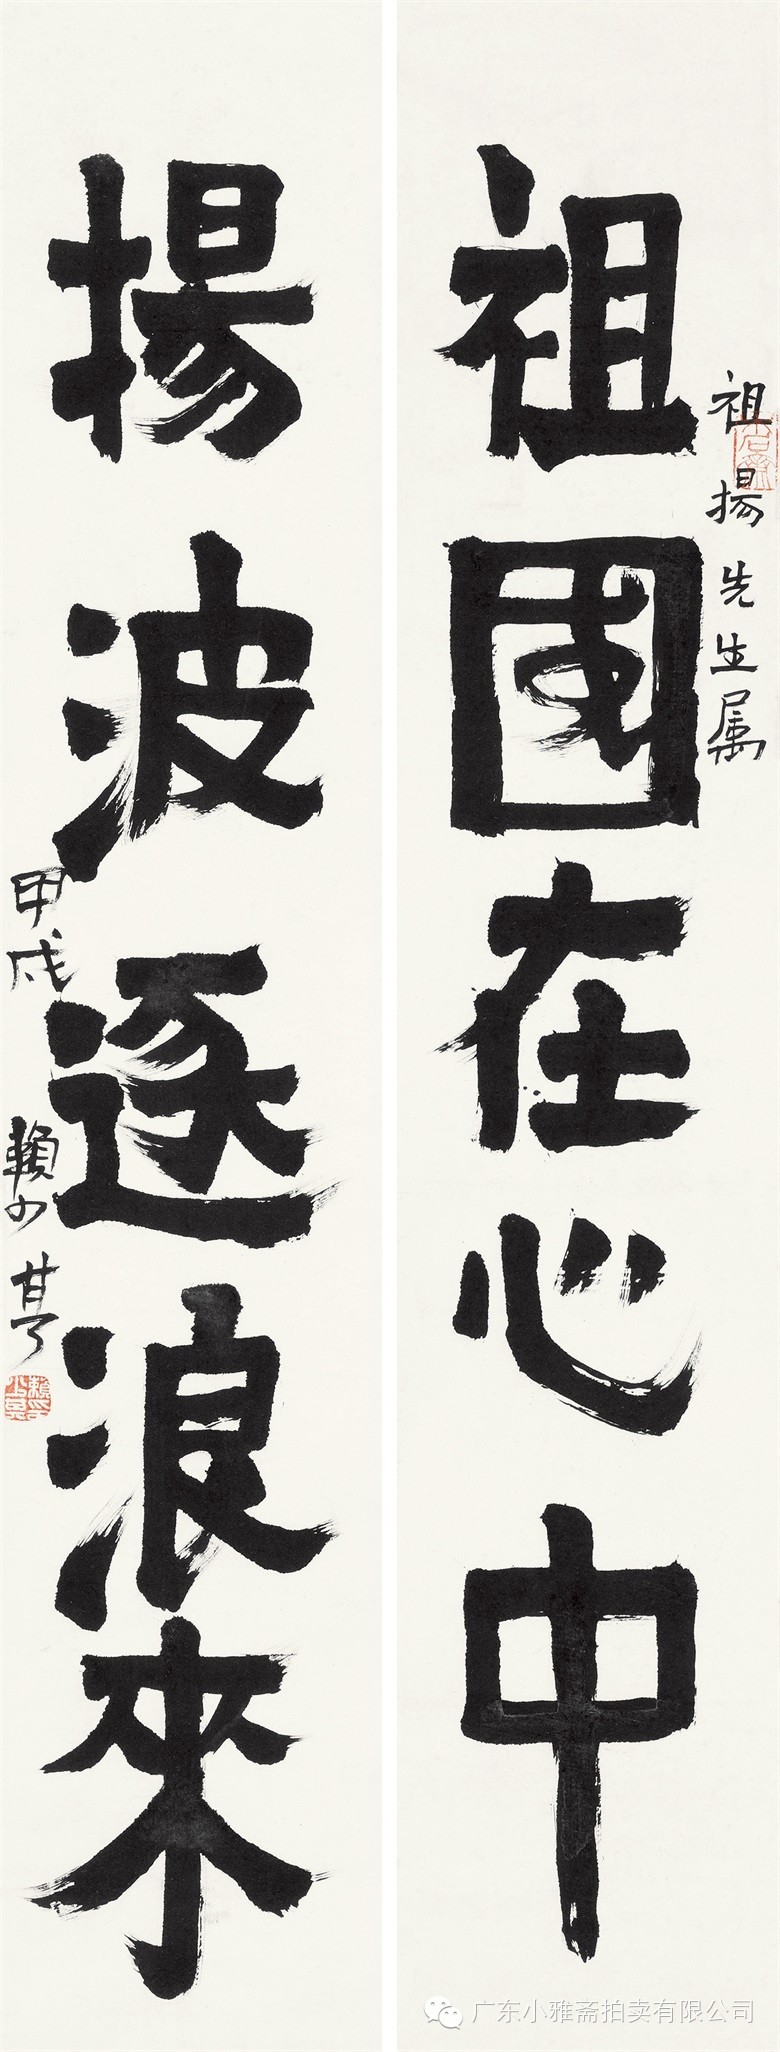 祖揚先生属
祖國在心中
揚波逐浪來
甲戌 賴少其
广东小雅斋拍卖有限公司